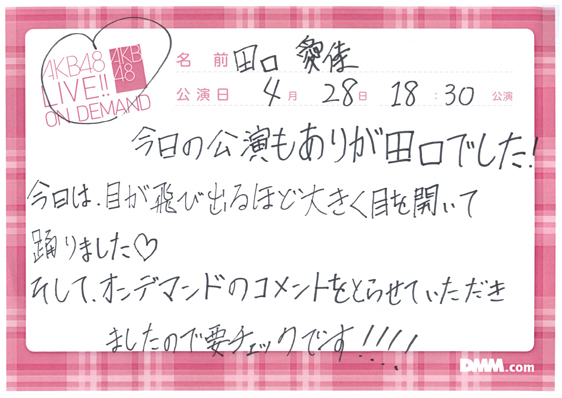 AKB48
LIVE!!
ON DEMAND
AKB
48
名 前 田口 愛佳
公演日 4月 28日 18:30 公演
今日の公演もありが田口でした!
今日は、目が飛び出るほど大きく目を開いて
踊りました♡
そして、オンデマンドのコメントをとらせていただき
ましたので要チェックです!!!!
DMM.com